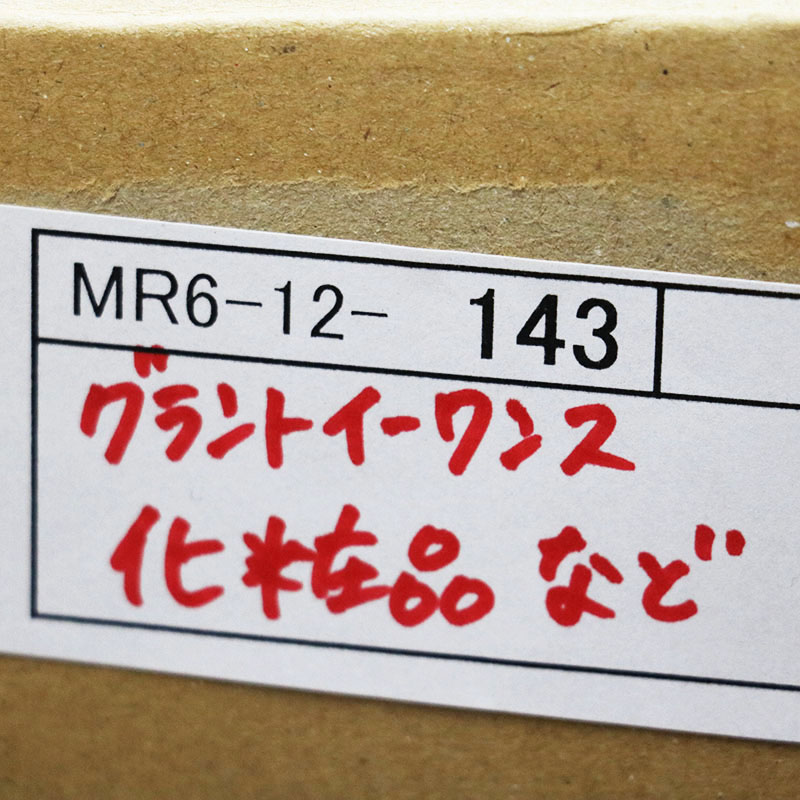 MR6-12- 143
グラントイーワンス
化粧品 など